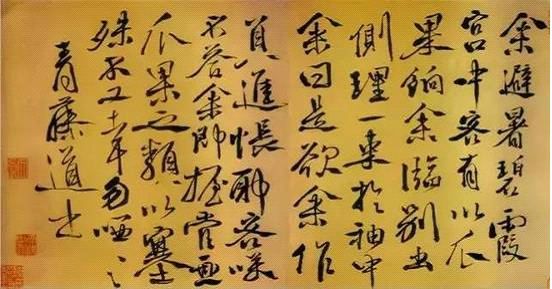 余避暑碧霞
宮中客有以瓜
果餉余臨別出
側理一束於袖中
余曰是欲余作
進帳耶客咲
不答余即握管画
瓜果之類以塞
殊不工幸勿哂之
青藤道士